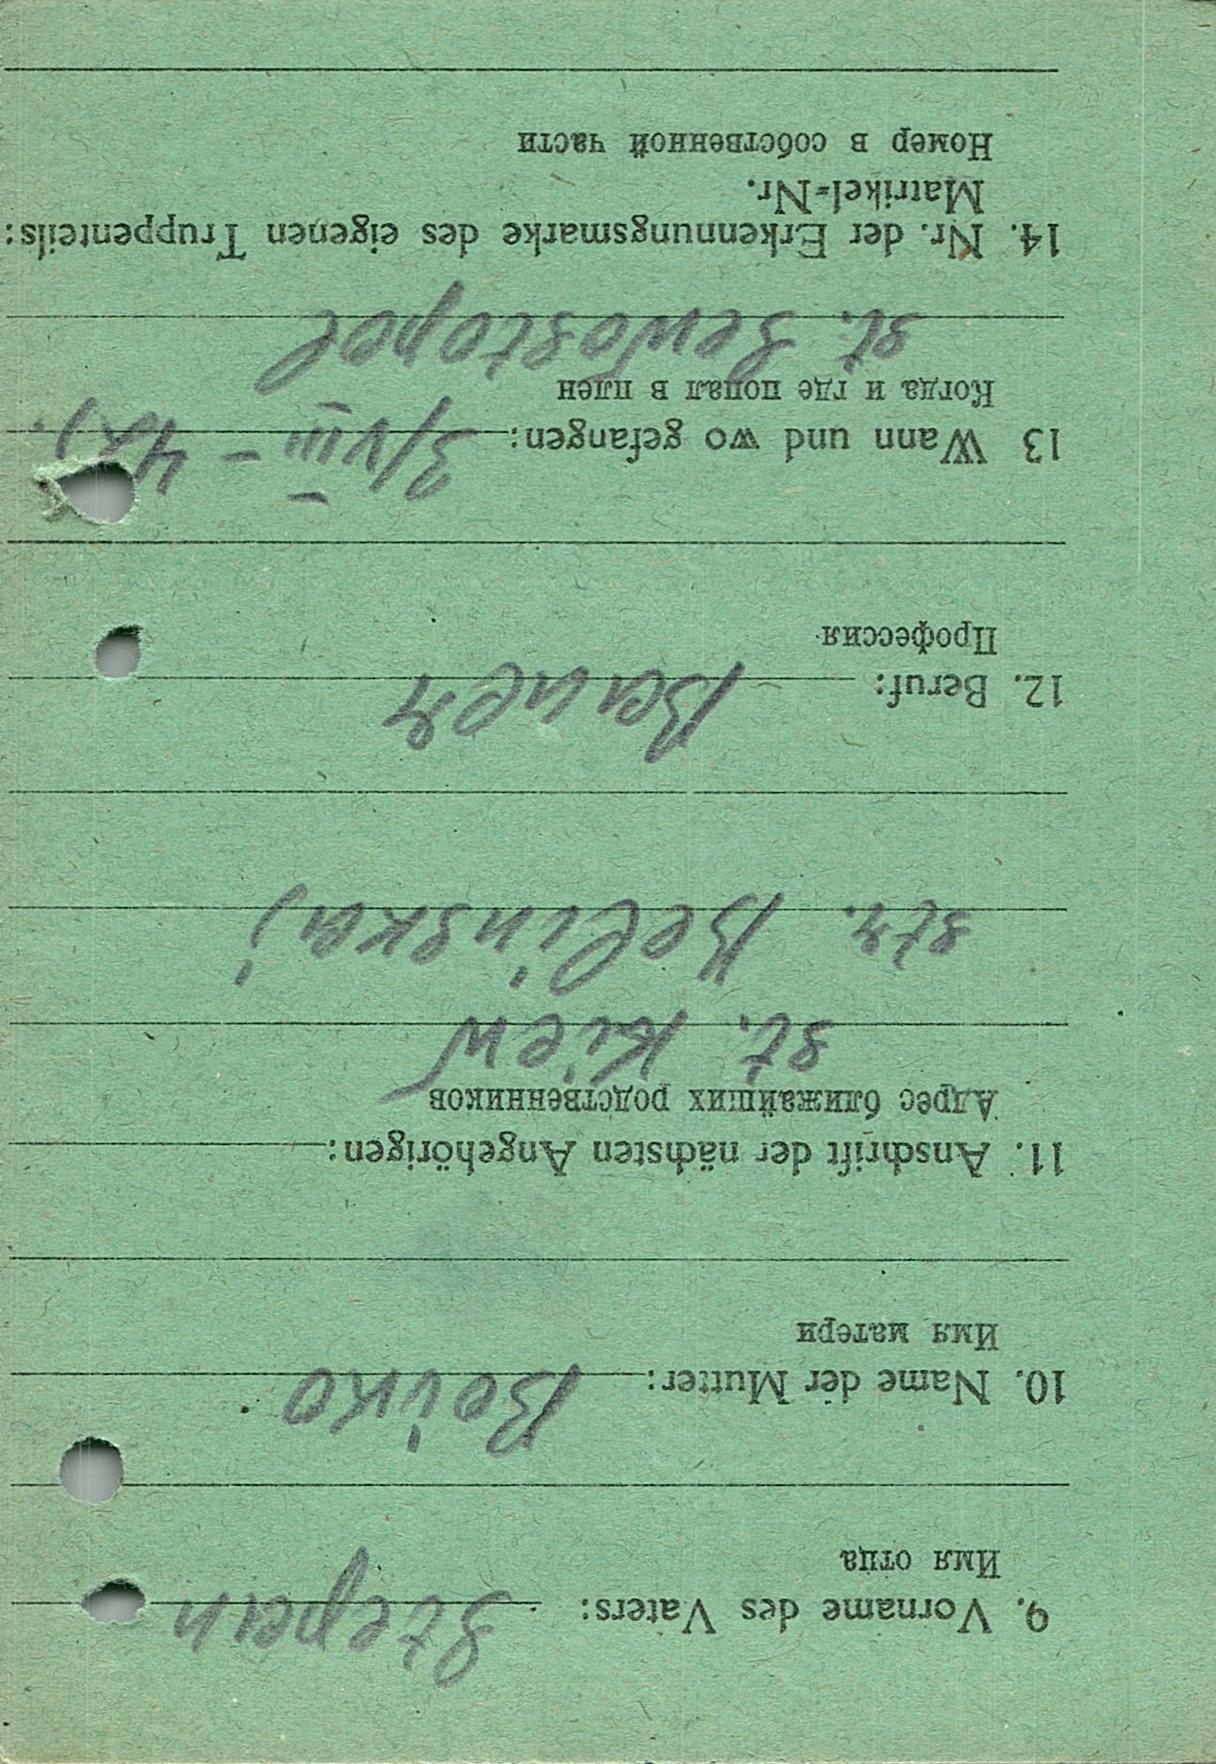 9. Vorname des Vaters: Stepan
Имя отца
10. Name der Mutter: Boiko
Имя матери
11. Anschrift der nächsten Angehörigen:
Адрес ближайших родственников
st. Kiew
str. Belinskai
12. Beruf: Bauer
Профессия
13 Wann und wo gefangen: 3/VIII - 42).
Когда и где попал в плен
st. Sewostopol
14. Nr. der Erkennungsmarke des eigenen Truppenteils:
Matrikel-Nr.
Номер в собственной части